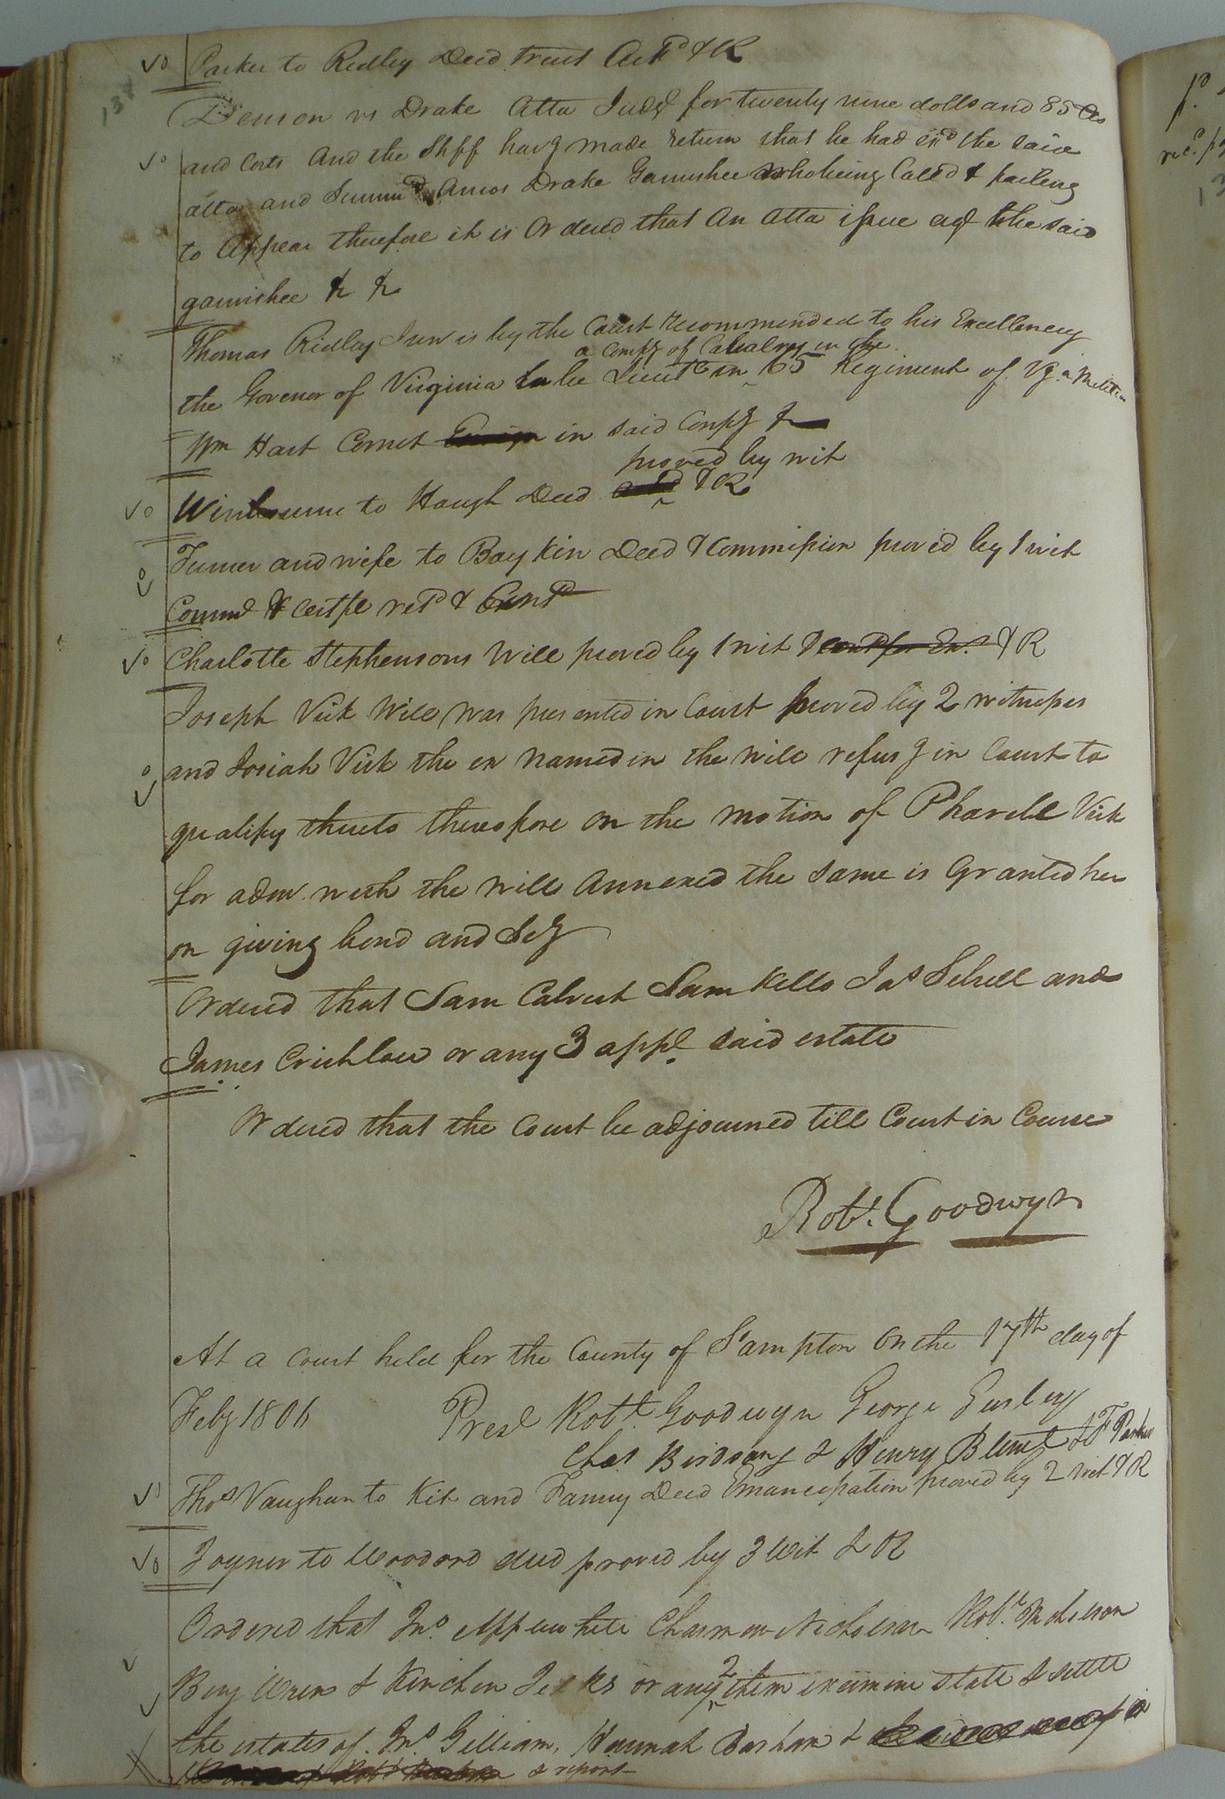 Parker to Ridley Deed trust Ackd & R
Denson vs Drake Atta Judgt for twenty nine dolls and 85 Cts
and Costs And the Shff havg made return that he had exd the said
atta and Summd Amos Drake Garnishee who being Called & faileng
to Appear therefore it is Ordered that An Atta issue agt the said
garnishee & &
Thomas Ridley Junr is by the Court recommended to his Excellency
a Compy of Cavalrey in the
the Govenor of Virginia to be Lieutt in 65 Regiment of Vga Militia
Wm Hart Cornet in said Compy &
proved by wit
to Haugh Deed & R
Turner and wife to Boykin Deed & Commission proved by 1 wit
Commn & certfe retd & Contd
Charlotte Stephensons Will proved by 1 wit & R
Joseph Vick Will was presented in Court proved by 2 witnesses
and Josiah Vick the ex Named in the will refusg in Court to
qualify thereto therefore on the motion of Vick
for adm. with the will Annexed the same is Granted her
on giving bond and Scy
Ordered that Sam Calvert Sam Kello Jas Sebrell and
James Crichlow or any 3 appl. said estate
Ordered that the Court be adjourned till Court in Course
Robt. Goodwyn
At a Court held for the County of S'ampton on the 17th day of
Feby 1806 Prest Robt Goodwyn George Gurley
Chas Birdsong & Henry Blunt & F Parker
Thos Vaughan to Kit and Fanny Deed Emancipation proved by 2 wit & R
Joyner to Woodard deed proved by 3 Wit & R
Ordered that Jno. Applewhite Nicholson Robt. Nicholson
Benj & Kinchen or any 2 them examine state & settle
the estates of Jno Gilliam, Hannah Barham &
& report